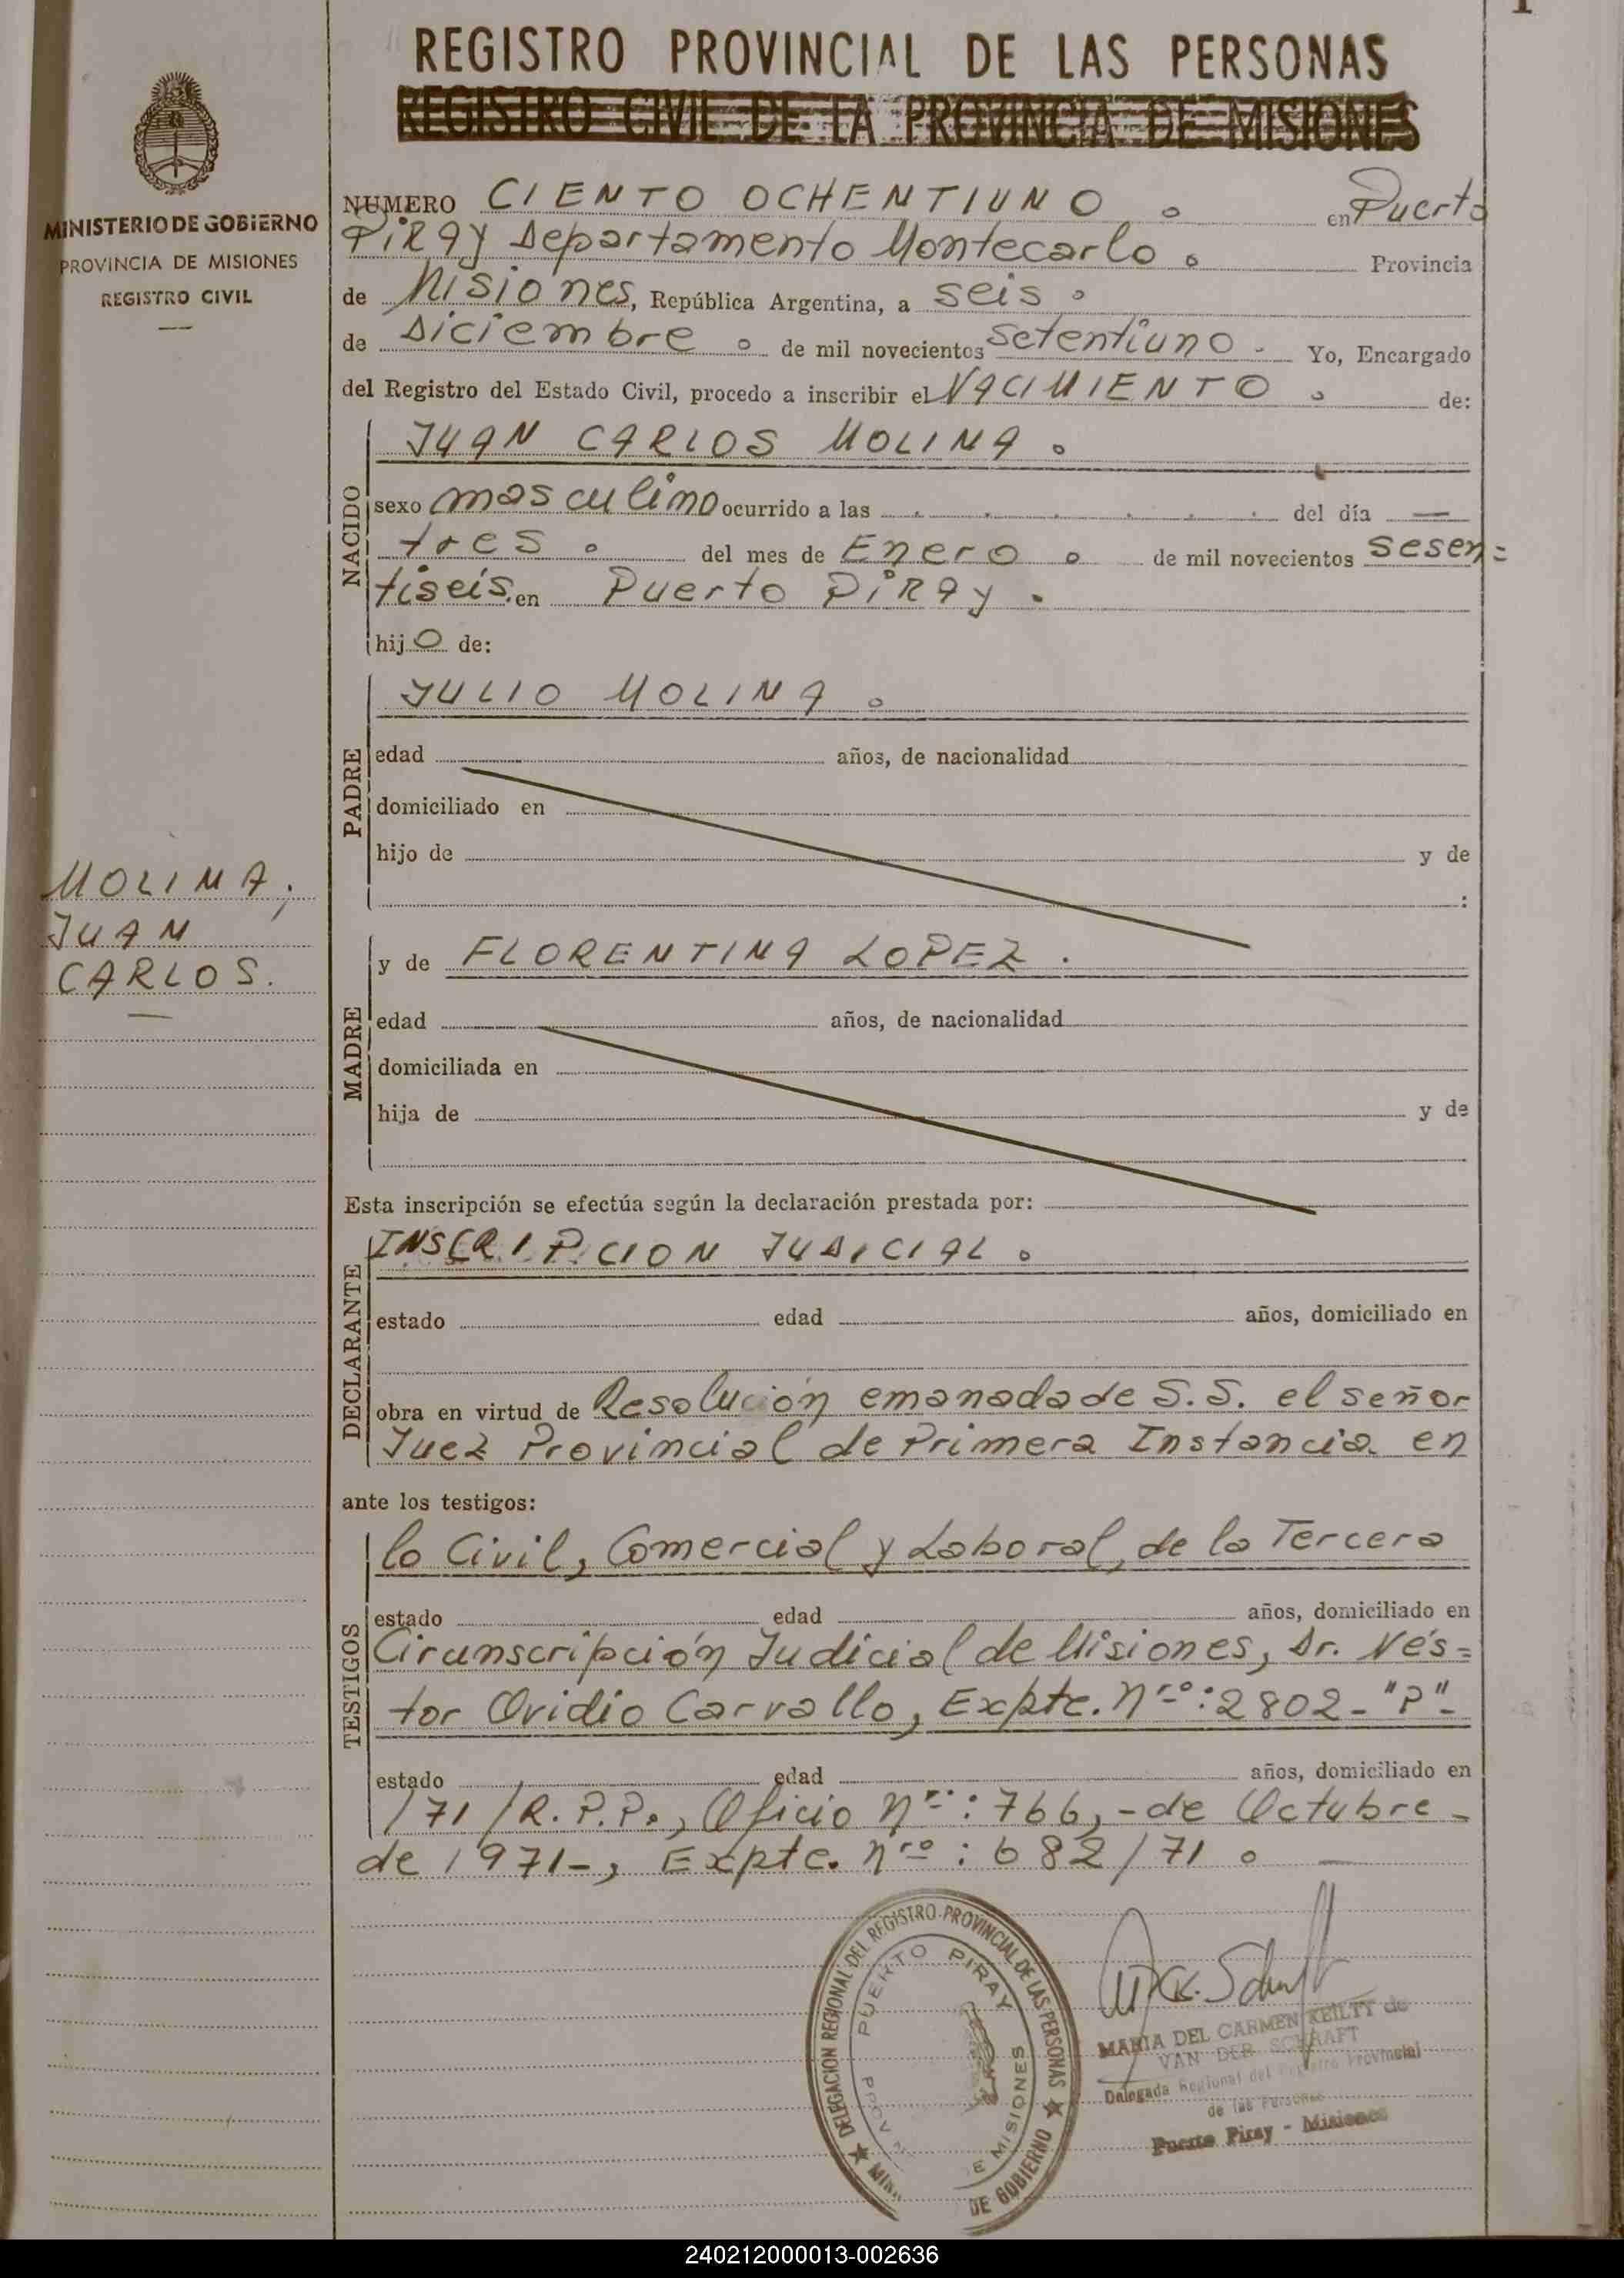 REGISTRO PROVINCIAL DE LAS PERSONAS
REGISTRO CIVIL DE LA PROVINCIA DE MISIONES
MINISTERIO DE GOBIERNO
PROVINCIA DE MISIONES
REGISTRO CIVIL
NUMERO CIENTO OCHENTIUNO. en Puerto
PiRay Departamento Montecarlo. Provincia
de Misiones, República Argentina, a seis.
de Diciembre. de mil novecientos setentiuno. Yo, Encargado
del Registro del Estado Civil, procedo a inscribir el NACIMIENTO. de:
NACIDO
JUAN CARLOS MOLINA.
sexo masculino ocurrido a las . . . . . . del día —
tres. del mes de Enero. de mil novecientos sesen=
tiseis. en Puerto PiRay.
hijo de:
PADRE
JULIO MOLINA.
edad años, de nacionalidad
domiciliado en
hijo de y de
:
MOLINA,
JUAN
CARLOS.
MADRE
y de FLORENTINA LOPEZ.
edad años, de nacionalidad
domiciliada en
hija de y de
Esta inscripción se efectúa según la declaración prestada por:
DECLARANTE
INSCRIPCION JUDICIAL.
estado edad años, domiciliado en
obra en virtud de Resolución emanada de S.S. el señor
Juez Provincial de Primera Instancia en
ante los testigos:
TESTIGOS
lo Civil, Comercial y Laboral, de la Tercera
estado edad años, domiciliado en
Circunscripción Judicial de Misiones, Dr. Nés=
tor Ovidio Carvallo, Expte. Nro: 2802-"P"-
estado edad años, domiciliado en
/71/R.P.P., Oficio Nro: 766,-de Octubre-
de 1971-, Expte. Nro: 682/71. —
DELEGACION REGIONAL DEL REGISTRO PROVINCIAL DE LAS PERSONAS
PUERTO PIRAY
MISIONES
DE GOBIERNO
MARIA DEL CARMEN KEILTY de
VAN DER SCHRAFT
Delegada Regional del Registro Provincial
de las Personas
Puerto Piray - Misiones
240212000013-002636